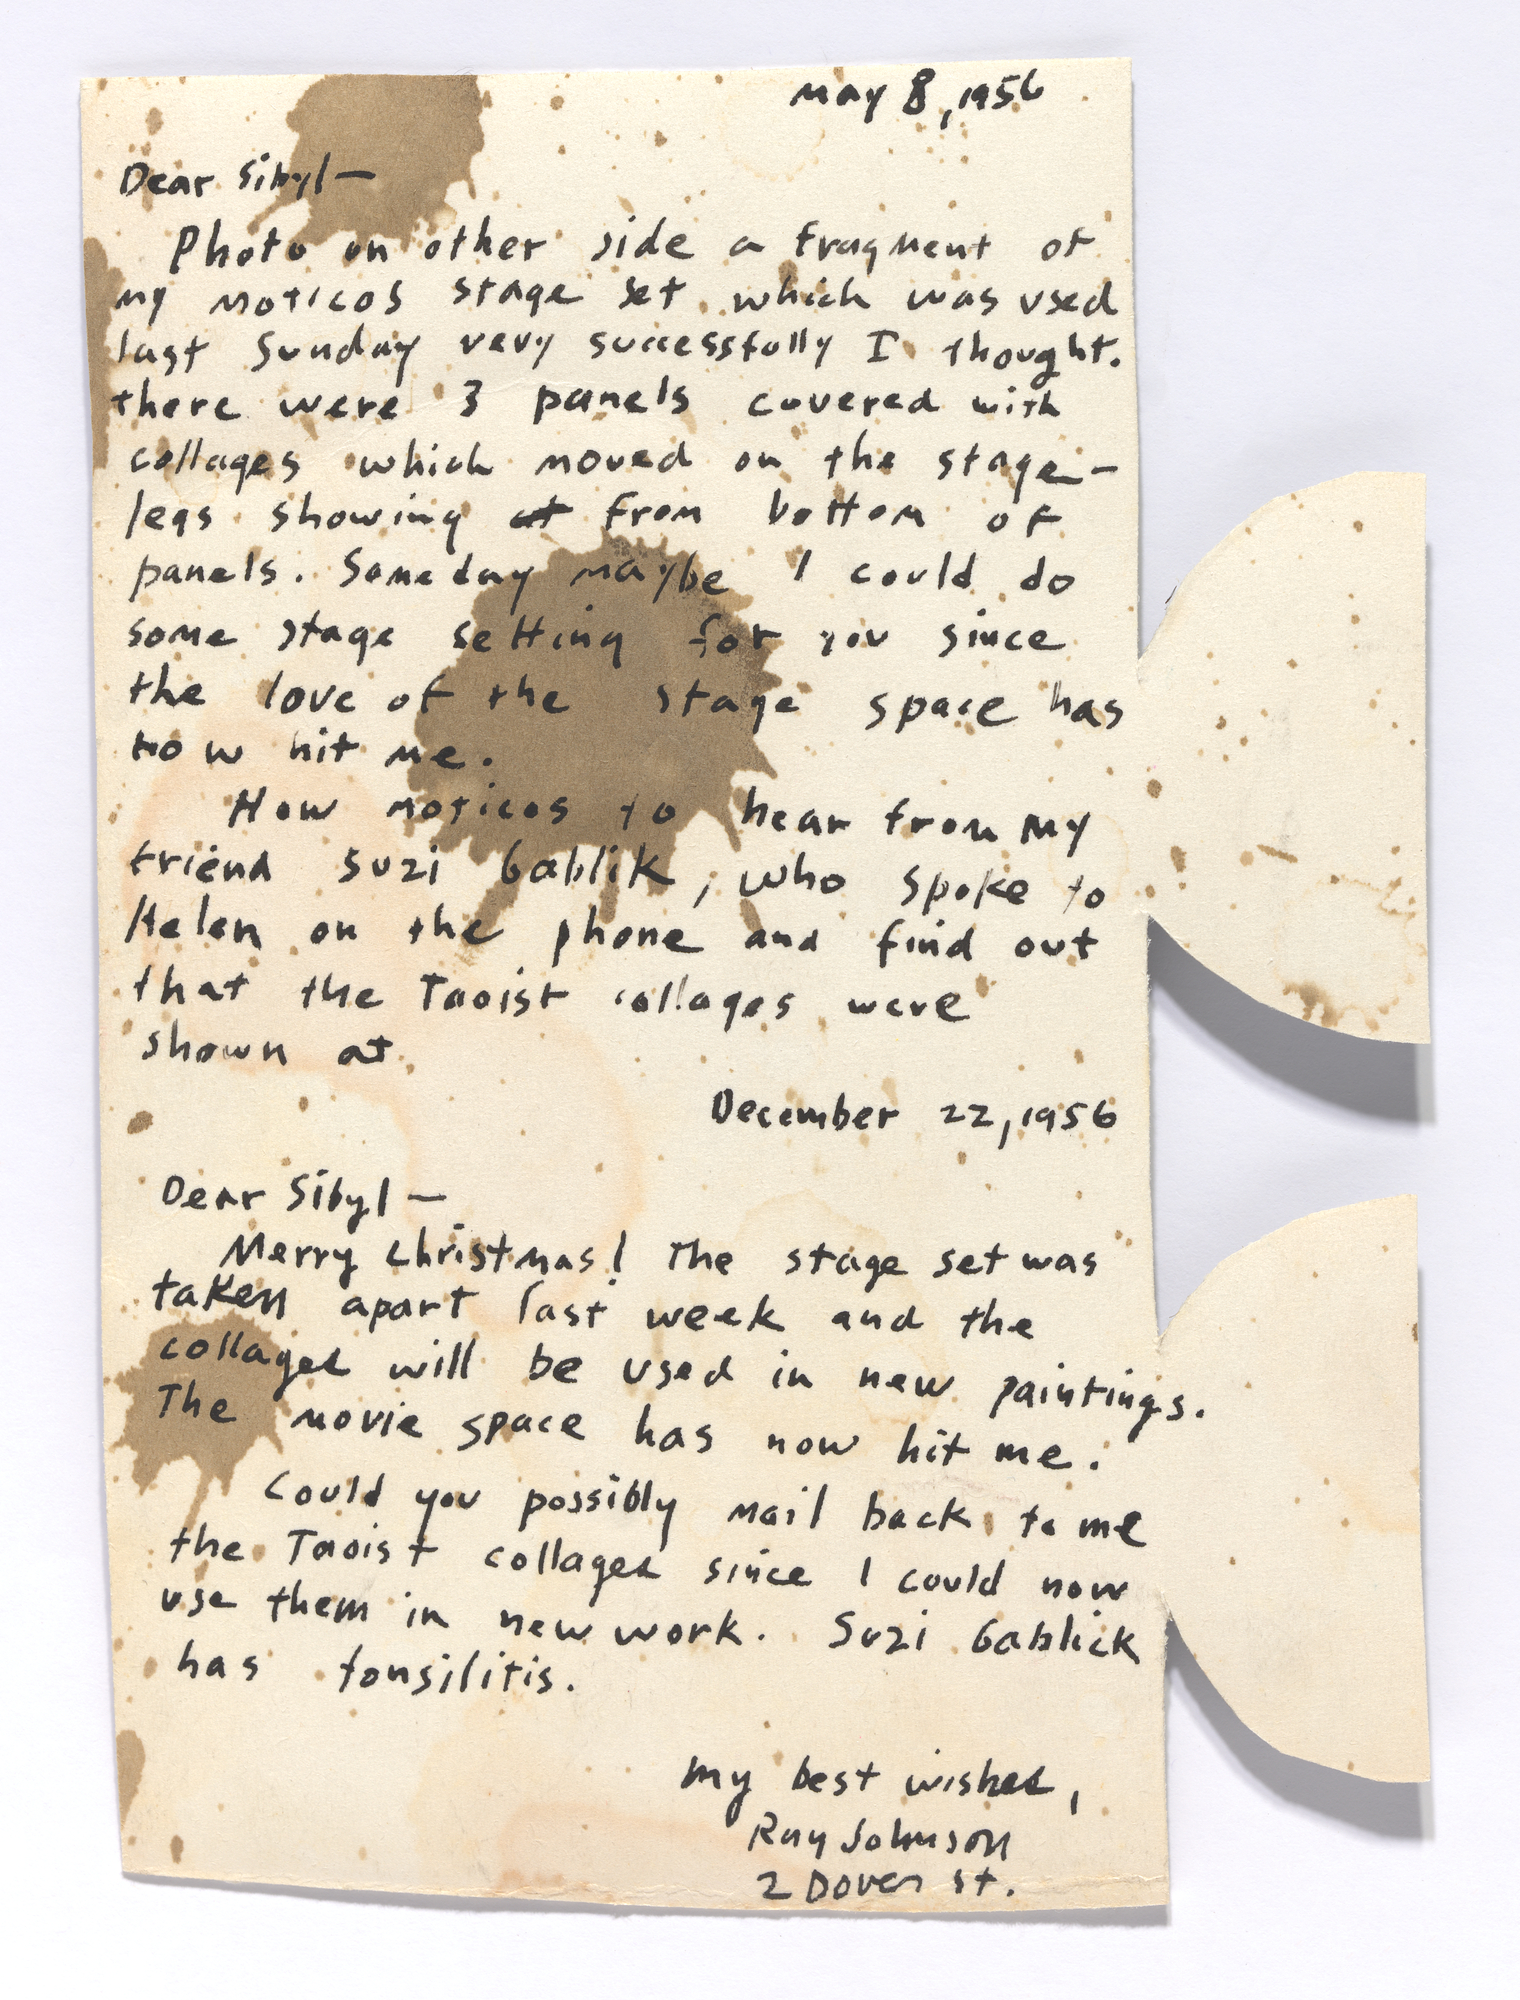 May 8, 1956
Dear Sibyl—
Photo on other side a fragment of
my moticos stage set which was used
last Sunday very successfully I thought.
there were 3 panels covered with
collages which moved on the stage—
legs showing at from bottom of
panels. Someday maybe I could do
some stage setting for you since
the love of the stage space has
now hit me.
How moticos to hear from my
friend Suzi Gablik, who spoke to
Helen on the phone and find out
that the Taoist collages were
shown at.
December 22, 1956
Dear Sibyl—
Merry Christmas! The stage set was
taken apart last week and the
collages will be used in new paintings.
The movie space has now hit me.
Could you possibly mail back to me
the Taoist collages since I could now
use them in new work. Suzi Gablick
has tonsilitis.
My best wishes,
Ray Johnson
2 Dover St.